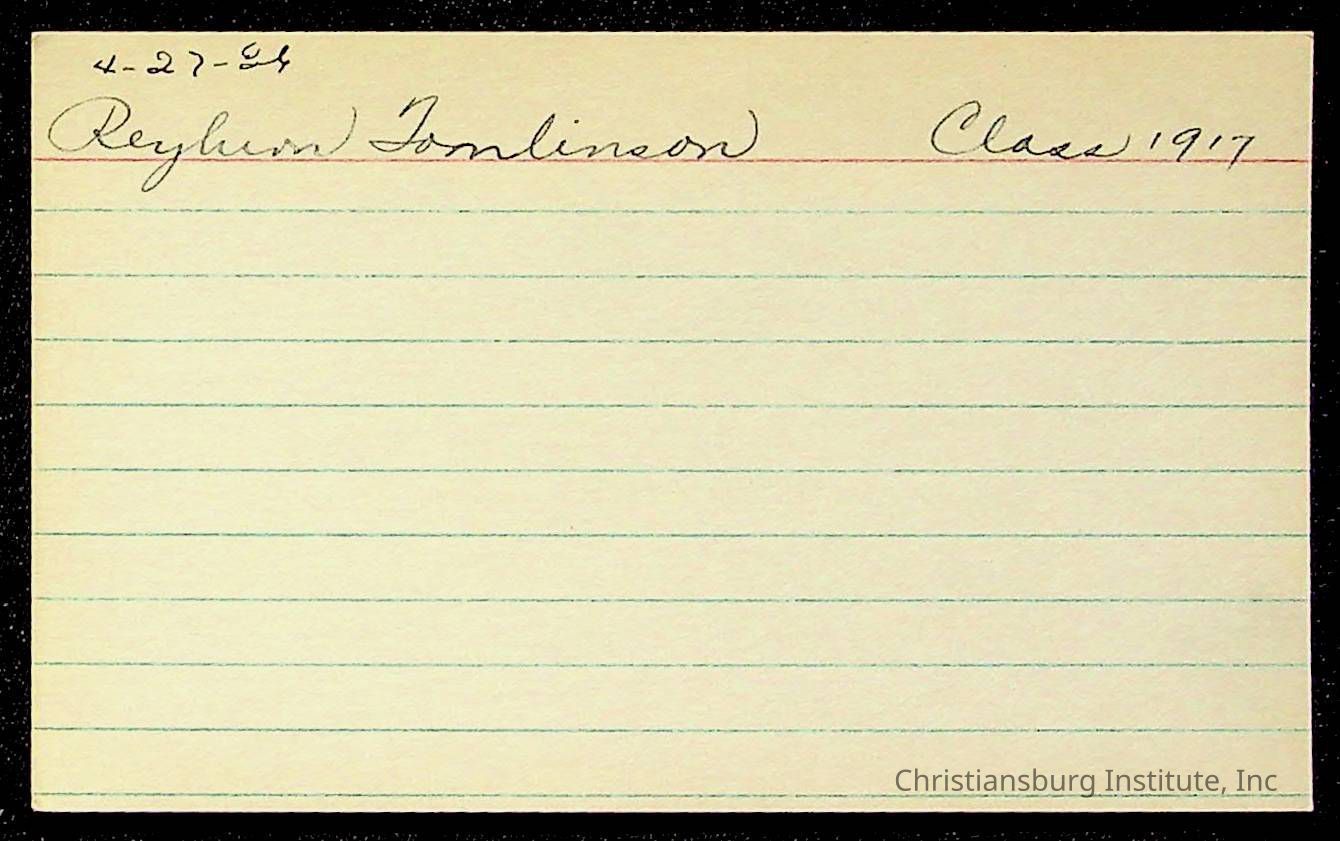 4-27-
Tomlinson Class 1917
Christiansburg Institute, Inc